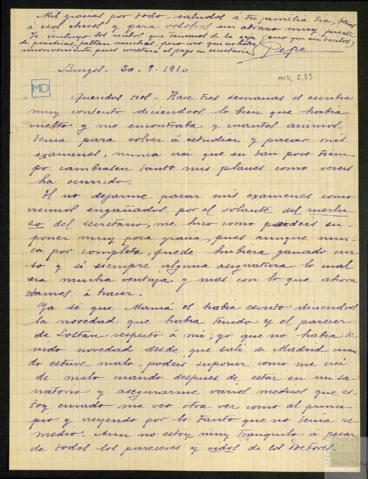 Mil gracias por todo saludos a tu familia tia, besos
á esos chicos y para vosotros un abrazo muy fuerte
Te incluyo los recibos que tenemos de la caja (creo que son bastantes)
de practicas, faltan muchas, pero creo que no habrá
inconveniente pues constará el pago en secretaria Pepe
Burgos - 20 - 9 - 1910
MD, 2,83
MD
Queridos tios: - Hace tres semanas os escribia
muy contento diciendoos lo bien que habia
vuelto y me encontraba y cuantos animos
tenia para volver á estudiar y pasar mis
examenes, nunca crei que en tan poco tiem-
po cambiasen tanto mis planes como vereis
ha ocurrido.
El no dejarme pasar mis examenes como
creimos engañados por el volante del
so del secretario, me hizo como podeis su-
poner muy poca gracia, pues aunque nun-
ca por completo, puede hubiera ganado cur-
so y si siempre alguna asignatura lo cual
era mucha ventaja y mas con lo que ahora
vamos á hacer.
Ya se que Mamá os habia escrito diciendoos
la novedad que habia tenido y el parecer
de respecto á mi; yo que no habia te-
nido novedad desde que sali de Madrid cuan-
do estuve malo, podeis suponer como me crei
de malo cuando despues de estar en un sa-
natorio y asegurarme varios medicos que es-
toy curado me veo otra vez como al princi-
pio y creyendo por lo tanto que no tenia re-
medio. Aun no estoy muy tranquilo á pesar
de todos los pareceres y de los Doctores.